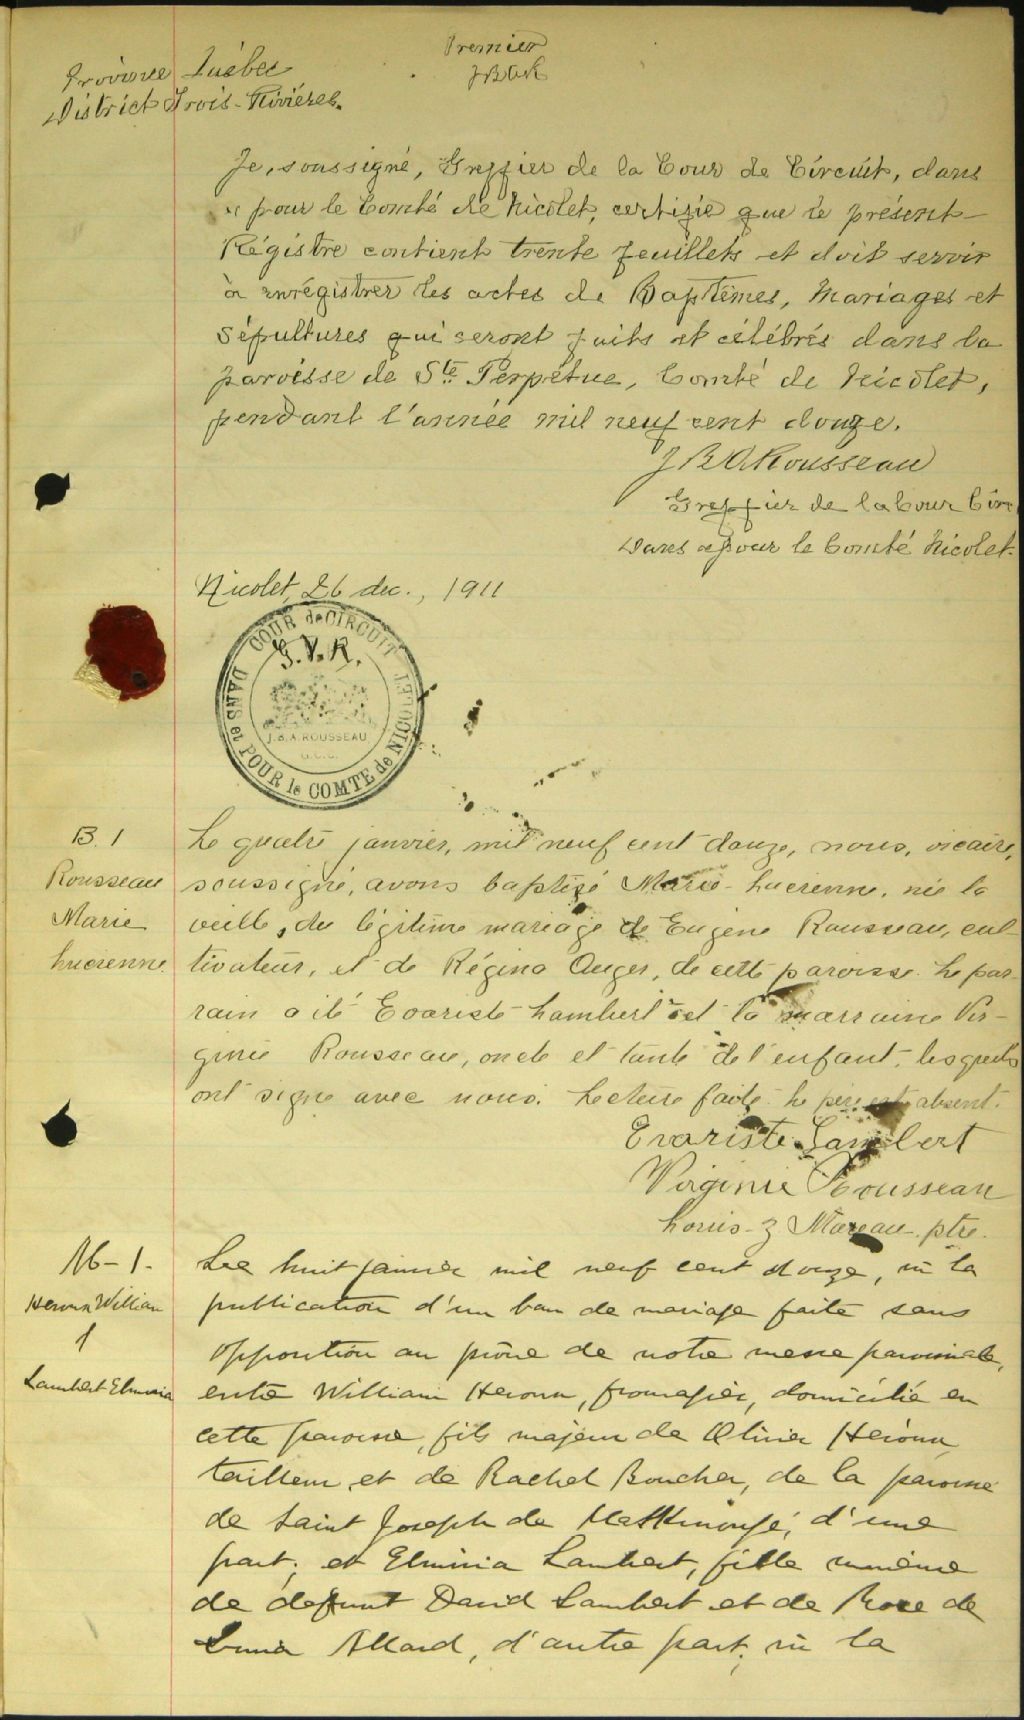 Premier
JBAR
Province Québec
District Trois-Rivières.
Je, soussigné, Greffier de la Cour de Circuit, dans
et pour le Comté de Nicolet, certifie que le présent
Régistre contient trente feuillets et doit servir
à enrégistrer les actes de Baptêmes, Mariages et
Sépultures qui seront faits et célébrés dans la
paroisse de Ste Perpétue, Comté de Nicolet,
pendant l'année mil neuf cent douze.
J B A Rousseau
Greffier de la Cour Circ
Dans et pour le Comté Nicolet.
Nicolet, 26 dec., 1911
COUR de CIRCUIT
G.V.R.
J.B.A. ROUSSEAU
G.C.C.
DANS et POUR le COMTE de NICOLET
B. 1
Rousseau
Marie
Lucienne
Le quatre janvier, mil neuf cent douze, nous, vicaire,
soussigné, avons baptisé Marie-Lucienne, née la
veille, du légitime mariage de Eugène Rousseau, cul-
tivateur, et de Régina Auger, de cette paroisse. Le par-
rain a été Evariste Lambert et la marraine Vir-
ginie Rousseau, oncle et tante de l'enfant, lesquels
ont signé avec nous. Lecture faite. Le père est absent.
Evariste Lambert
Virginie Rousseau
Louis-J Mareau ptre.
M-1.
Heroux William
&
Lambert Elmiria
Le huit janvier mil neuf cent douze, vu la
publication d'un ban de mariage faite sans
opposition au prône de notre messe paroissiale,
entre William Heroux, fromagier, domicilié en
cette paroisse, fils majeur de Olivier Héroux
tailleur et de Rachel Boucher, de la paroisse
de Saint Joseph de Maskinongé, d'une
part; et Elmiria Lambert, fille mineure
de défunt David Lambert et de Rose de
Lima Allard, d'autre part; vu la